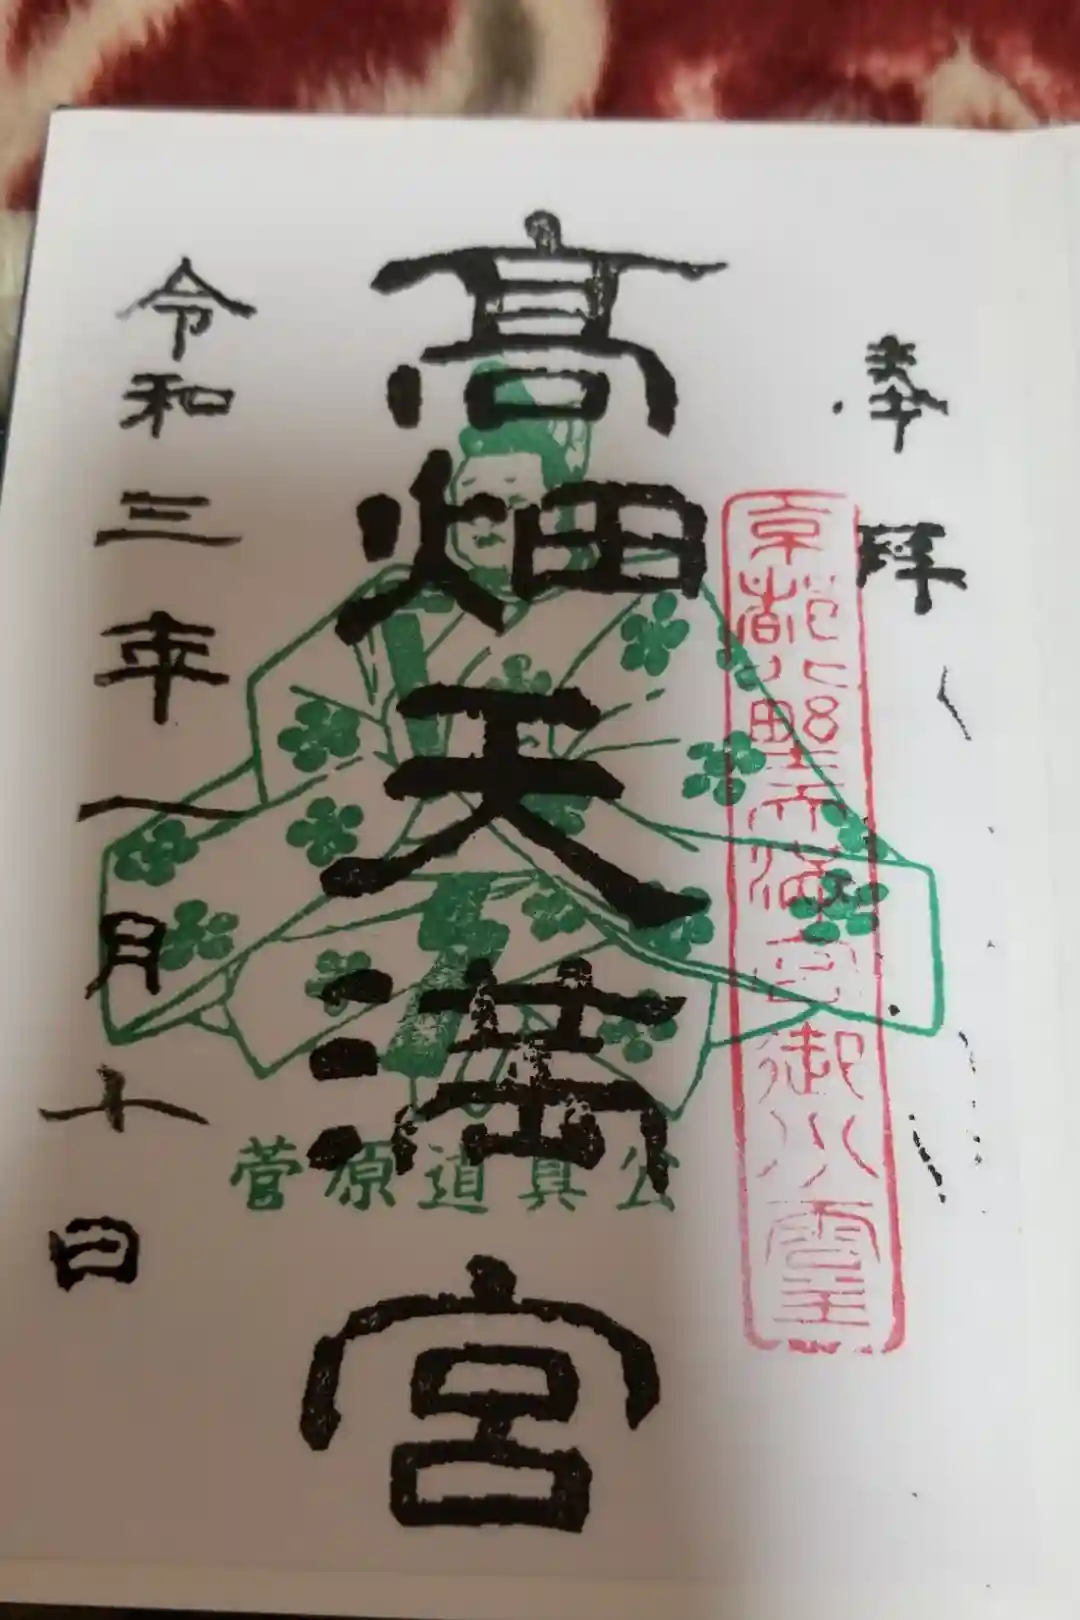 奉拝
京都北野天満宮御分霊
髙畑天満宮
菅原道真公
令和三年一月十日